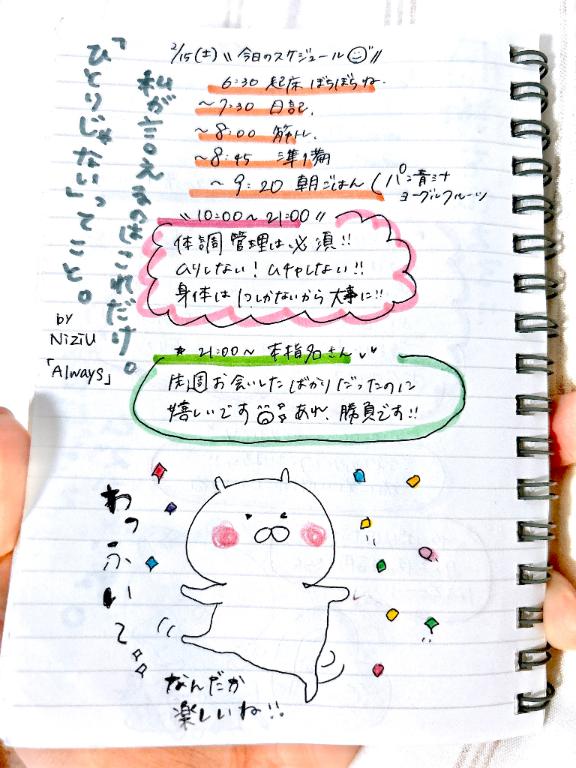 2/15(土) \\ 今日のスケジュール //
6:30 起床 ぼちぼちね.
〜7:30 日記.
〜8:00 筋トレ.
〜8:45 準備
〜9:20 朝ごはん(パン 青ミナ
ヨーグルフルーツ
\\ 10:00〜21:00 //
体調管理は必須!!
ムリしない! ムチャしない!!
身体は1つしかないから大事に!!
* 21:00〜 本指名さん
先週お会いしたばかりだったのに
嬉しいです あれ、勝負です!!
「ひとりじゃない」ってこと。
私が言えるのはこれだけ。
by
NiziU
「Always」
わっふいて
なんだか
楽しいね!!